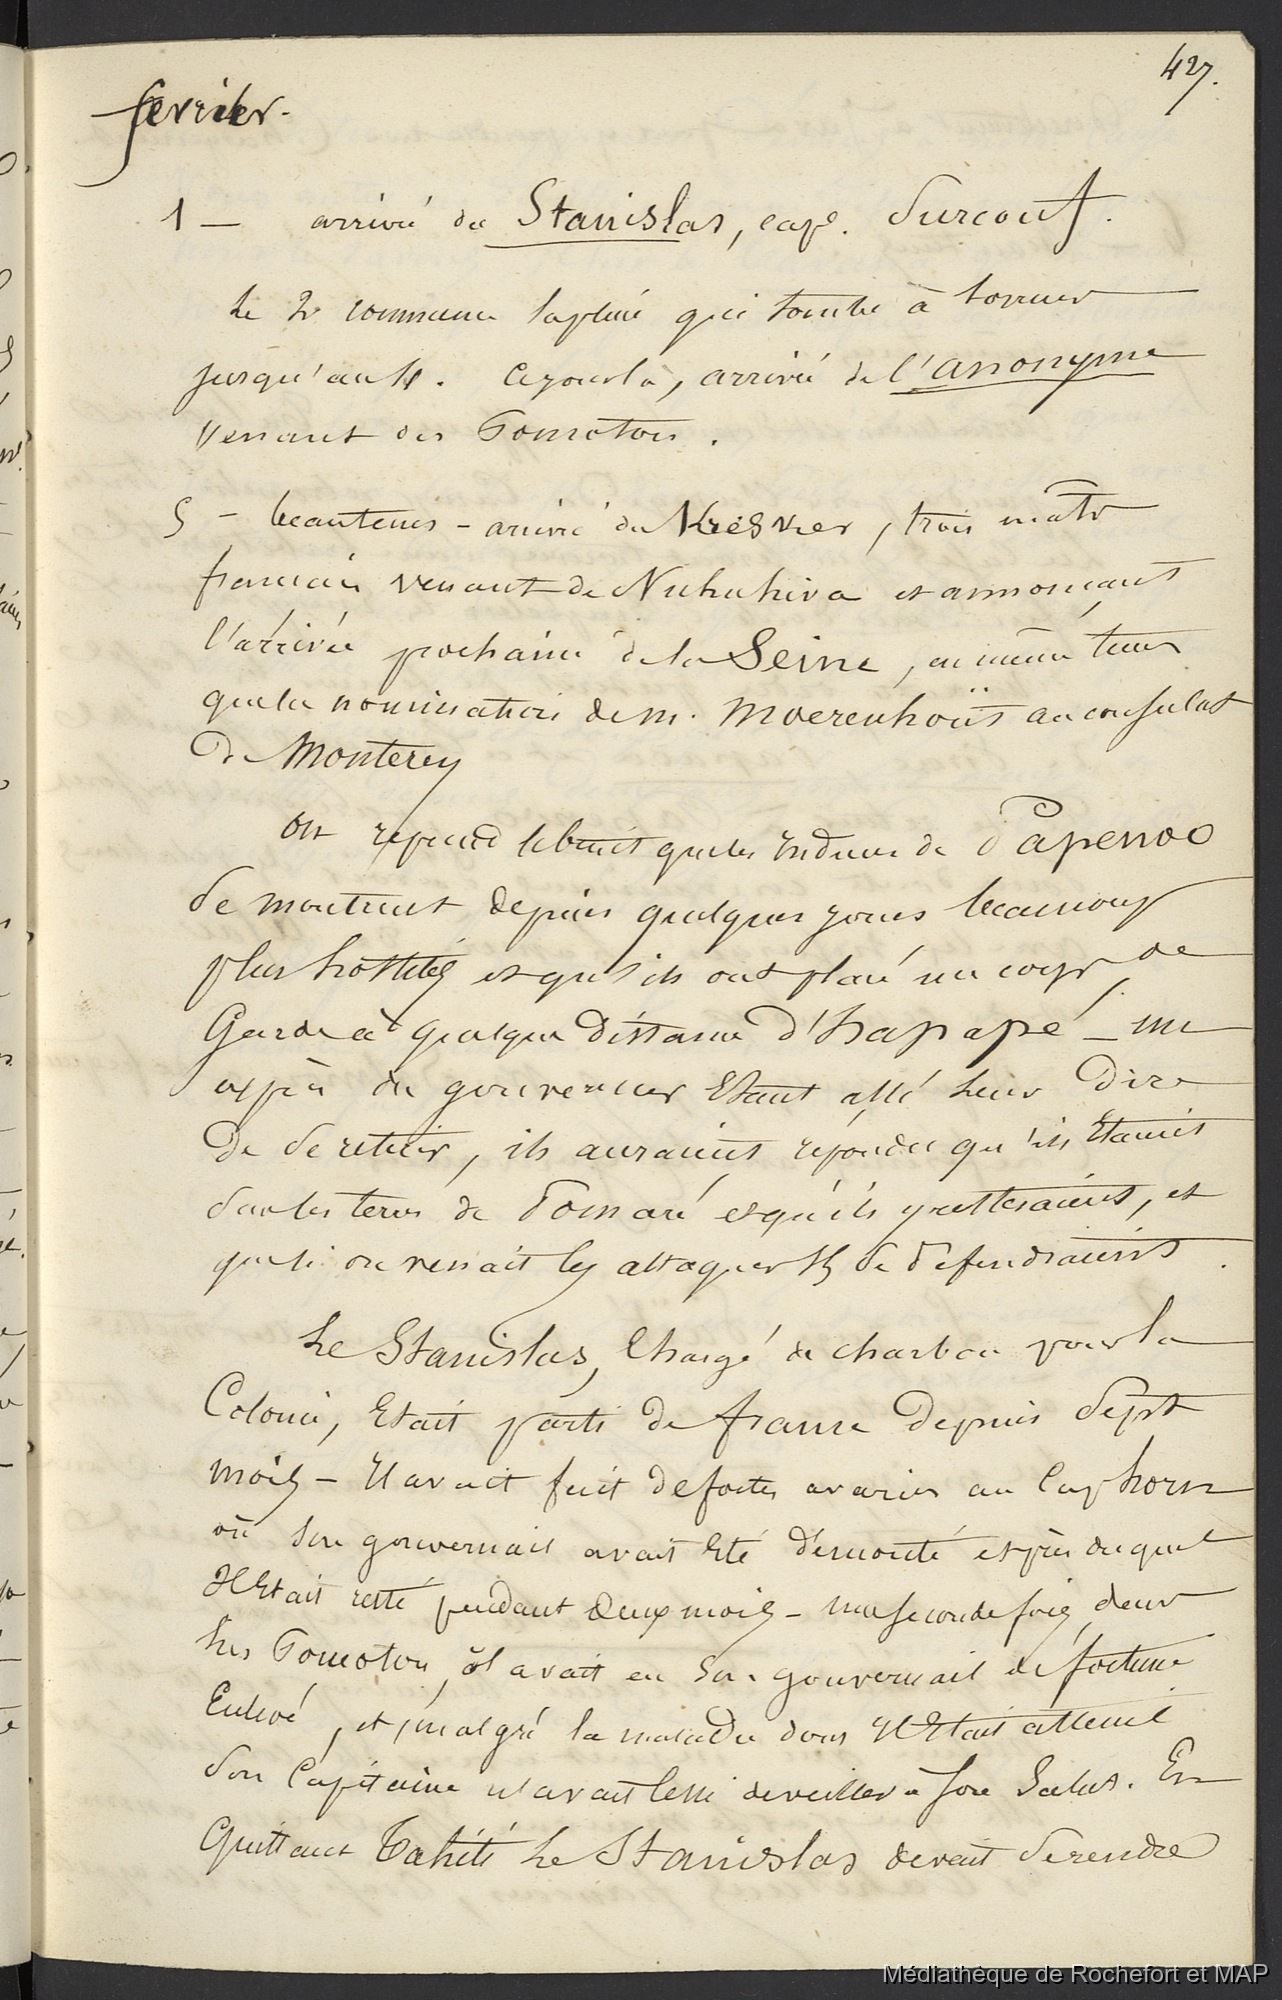 427.
fevrier.
1 — arrivée du Stanislas, cap. Surcouf.
Le 2 commence la pluie qui tombe à torrens
jusqu'au 4. Ce jour là, arrivée de l'anonyme
venant des Pomotou.
5 - beautems - arrivée du Kerguer, trois mâts
francais venant de Nuhuhiva et annoncant
l'arrivée prochaine de la Seine, en même tems
que la nomination de m. Moerenhoüt au consulat
de Monterey
On repand le bruit que les Indiens de Papenoo
se montrent depuis quelques jours beaucoup
plus hostiles et qu'ils ont placé un corps de
Garde à quelque distance d'hapapé - un
exprès du gouverneur Etant allé leur dire
de se retirer, ils auraient répondu qu'ils Etaient
sur les terres de Pomaré et qu'ils y resteraient, et
que si on venait les attaquer ils se defendraient.
Le Stanislas, Chargé de charbon pour la
Colonie, Etait parti de france depuis Sept
mois - Il avait fait de fortes avaries au Cap horn
où son gouvernail avait Eté démonté et près duquel
Il Etait resté pendant deux mois - une seconde fois, dans
les Pomotou, il avait eu son gouvernail de fortune
Enlevé, et, malgré la maladie dont il Etait atteint
son Capitaine n'avait cessé de veiller à son Salut. En
Quittant Tahiti le Stanislas devait se rendre
Médiathèque de Rochefort et MAP